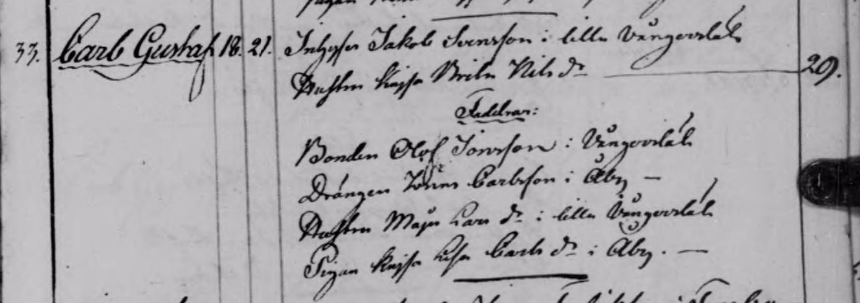 33. Carl Gustaf 18. 21. Inhyses Jakob Svensson i lilla Vångerslät
Hustru Kajsa Brita Nils dr 29.
Faddrar:
Bonden Olof Jonsson i Vångerslät
Drängen Jonas Carlsson i Åby
Hustru Maja Lars dr i lilla Vångerslät
Pigan Kajsa Lisa Carls dr i Åby.